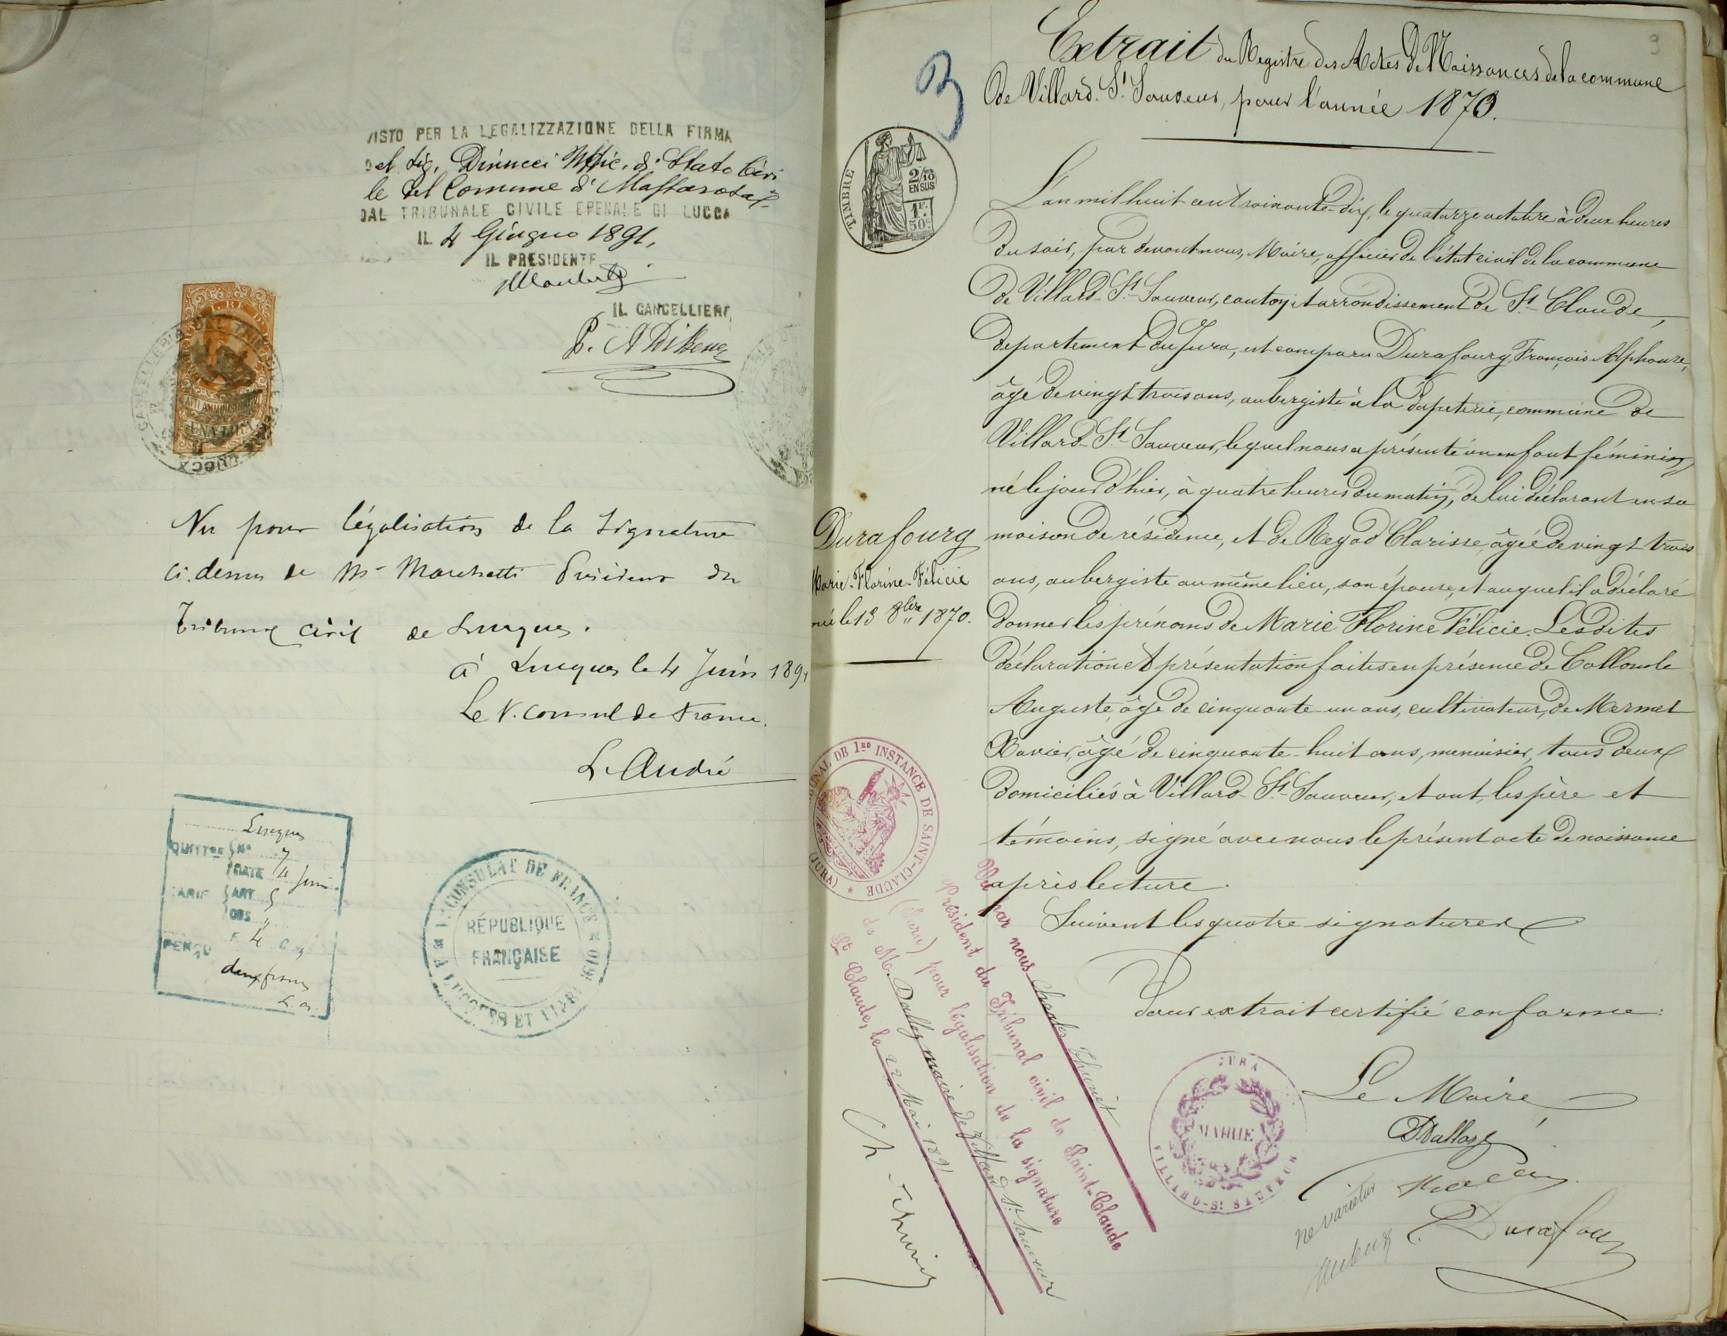 VISTO PER LA LEGALIZZAZIONE DELLA FIRMA
del Sig. Dinucci Uffic. di Stato Civi
le del Comune di Massarosa
DAL TRIBUNALE CIVILE E PENALE DI LUCCA
IL 4 Giugno 1891.
IL PRESIDENTE
IL CANCELLIERE
Vu pour légalisation de la signature
ci-dessus de Mr Marchetti Président du
Tribunal civil de Lucques.
à Lucques le 4 Juin 1891
Le V. Consul de France.
L. André
Lucques
QUITTCE No 7
DATE 4 Juin
TARIF ART 5
OBS "
PERÇU F. 4 C
deux francs
L. A.
CONSULAT DE FRANCE
LUCQUES ET
RÉPUBLIQUE
FRANÇAISE
3
9
Extrait du Registre des Actes de Naissances de la commune
de Villard-St Sauveur, pour l'année 1870.
TIMBRE
2/10
EN SUS
1F.
50c
L'an mil huit cent soixante-dix, le quatorze octobre à deux heures
du soir, par devant nous, Maire, officier de l'état civil de la commune
de Villard-St Sauveur, canton et arrondissement de St Claude,
département du Jura, est comparu Durafourg François Alphonse,
âgé de vingt trois ans, aubergiste à la Papeterie, commune de
Villard-St Sauveur, lequel nous a présenté un enfant féminin,
né le jour d'hier, à quatre heures du matin, de lui déclarant en sa
Durafourg
Marie-Florine-Félicie
né le 13 8bre 1870.
maison de résidence, et de Regad Clarisse, âgée de vingt trois
ans, aubergiste au même lieu, son épouse, et auquel il a déclaré
donner les prénoms de Marie Florine Félicie. Lesdites
déclaration et présentation faites en présence de Collomb
Auguste, âgé de cinquante un ans, cultivateur, de Mermet
Xavier, âgé de cinquante-huit ans, menuisier, tous deux
domiciliés à Villard-St Sauveur, et ont, les père et
témoins, signé avec nous le présent acte de naissance
après lecture.
Suivent les quatre signatures
Pour extrait certifié conforme:
Le Maire
Dalloz
Durafourg
ne varietur
TRIBUNAL DE 1re INSTANCE DE SAINT-CLAUDE
(JURA)
Vu par nous Charles Thuriet
Président du Tribunal civil de Saint-Claude
(Jura) pour légalisation de la signature
de M. Dalloz maire de Villard St Sauveur
St Claude, le 22 Mai 1891
Ch. Thuriet
JURA
MAIRIE
VILLARD-St SAUVEUR